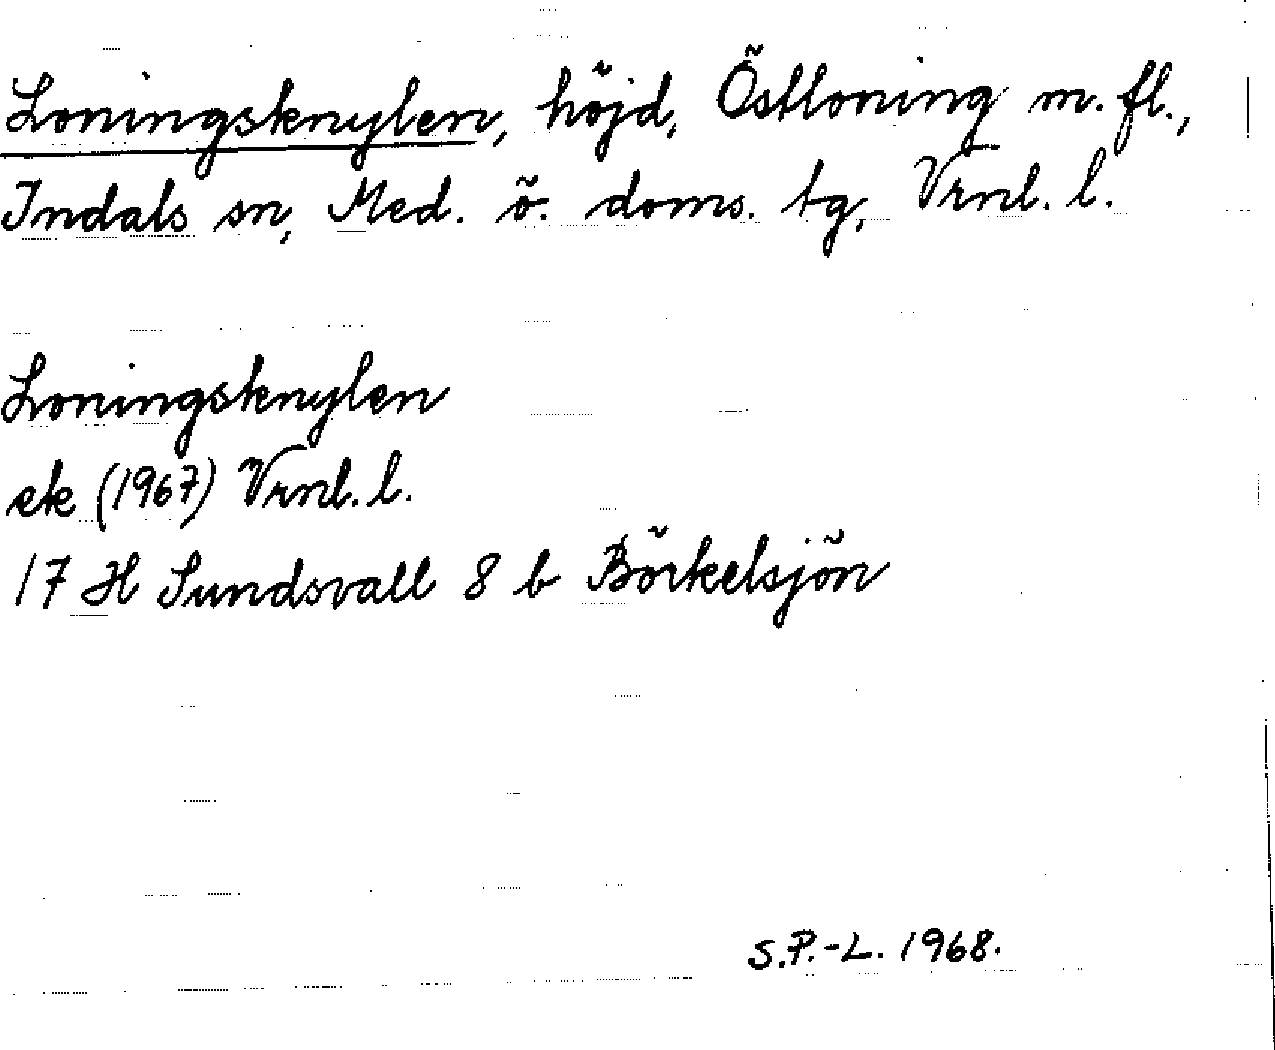 Loningsknylen, höjd, Östloning m. fl.,
Indals sn, Med. ö. doms. tg, Vrnl. l.
Loningsknylen
ek (1967) Vrnl. l.
17 H Sundsvall 8 b Börkelsjön
S.P.-L. 1968.